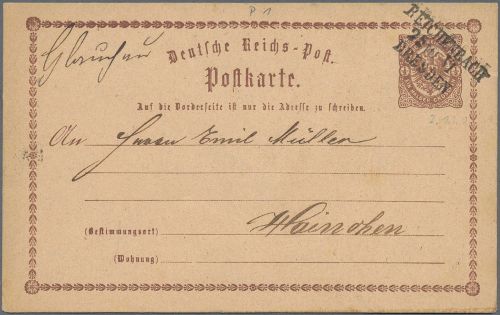 P 1
Glauchau
Deutsche Reichs-Post.
Postkarte.
Auf die Vorderseite ist nur die Adresse zu schreiben.
REICHENBACH
DRESDEN
An Herrn Emil Müller
Hainichen
(Bestimmungsort)
(Wohnung)